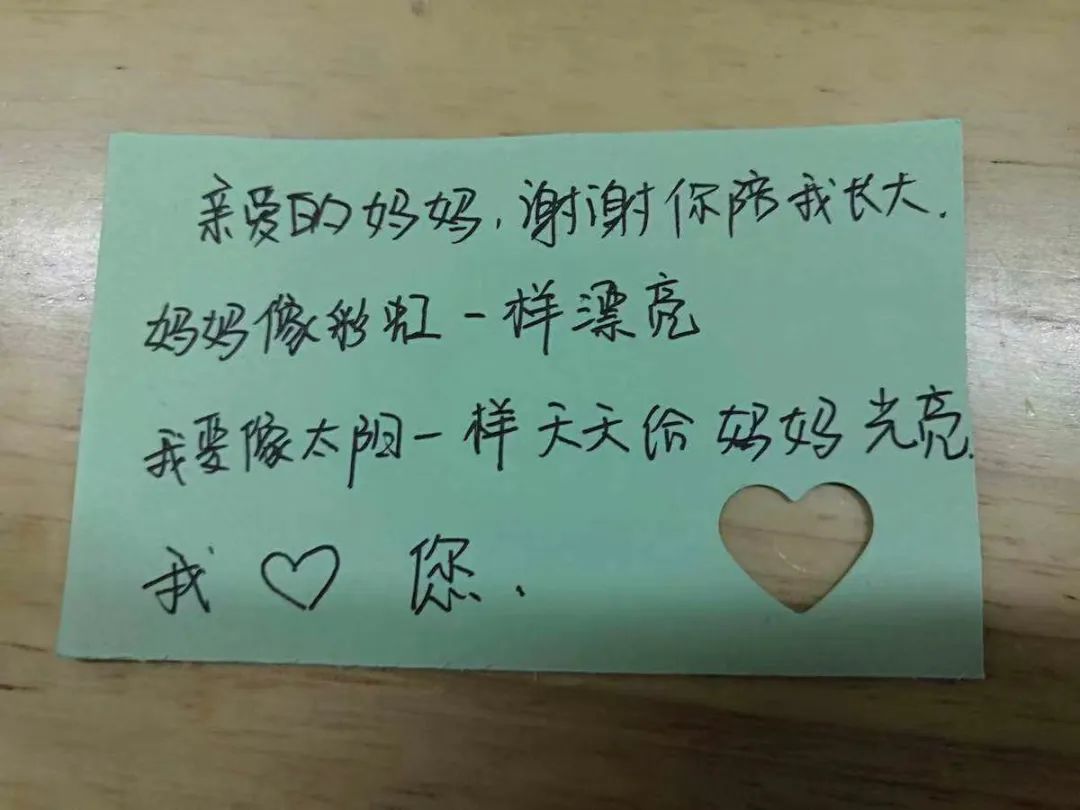 亲爱的妈妈,谢谢你陪我长大.
妈妈像彩虹一样漂亮
我要像太阳一样天天给妈妈光亮.
我♡您.